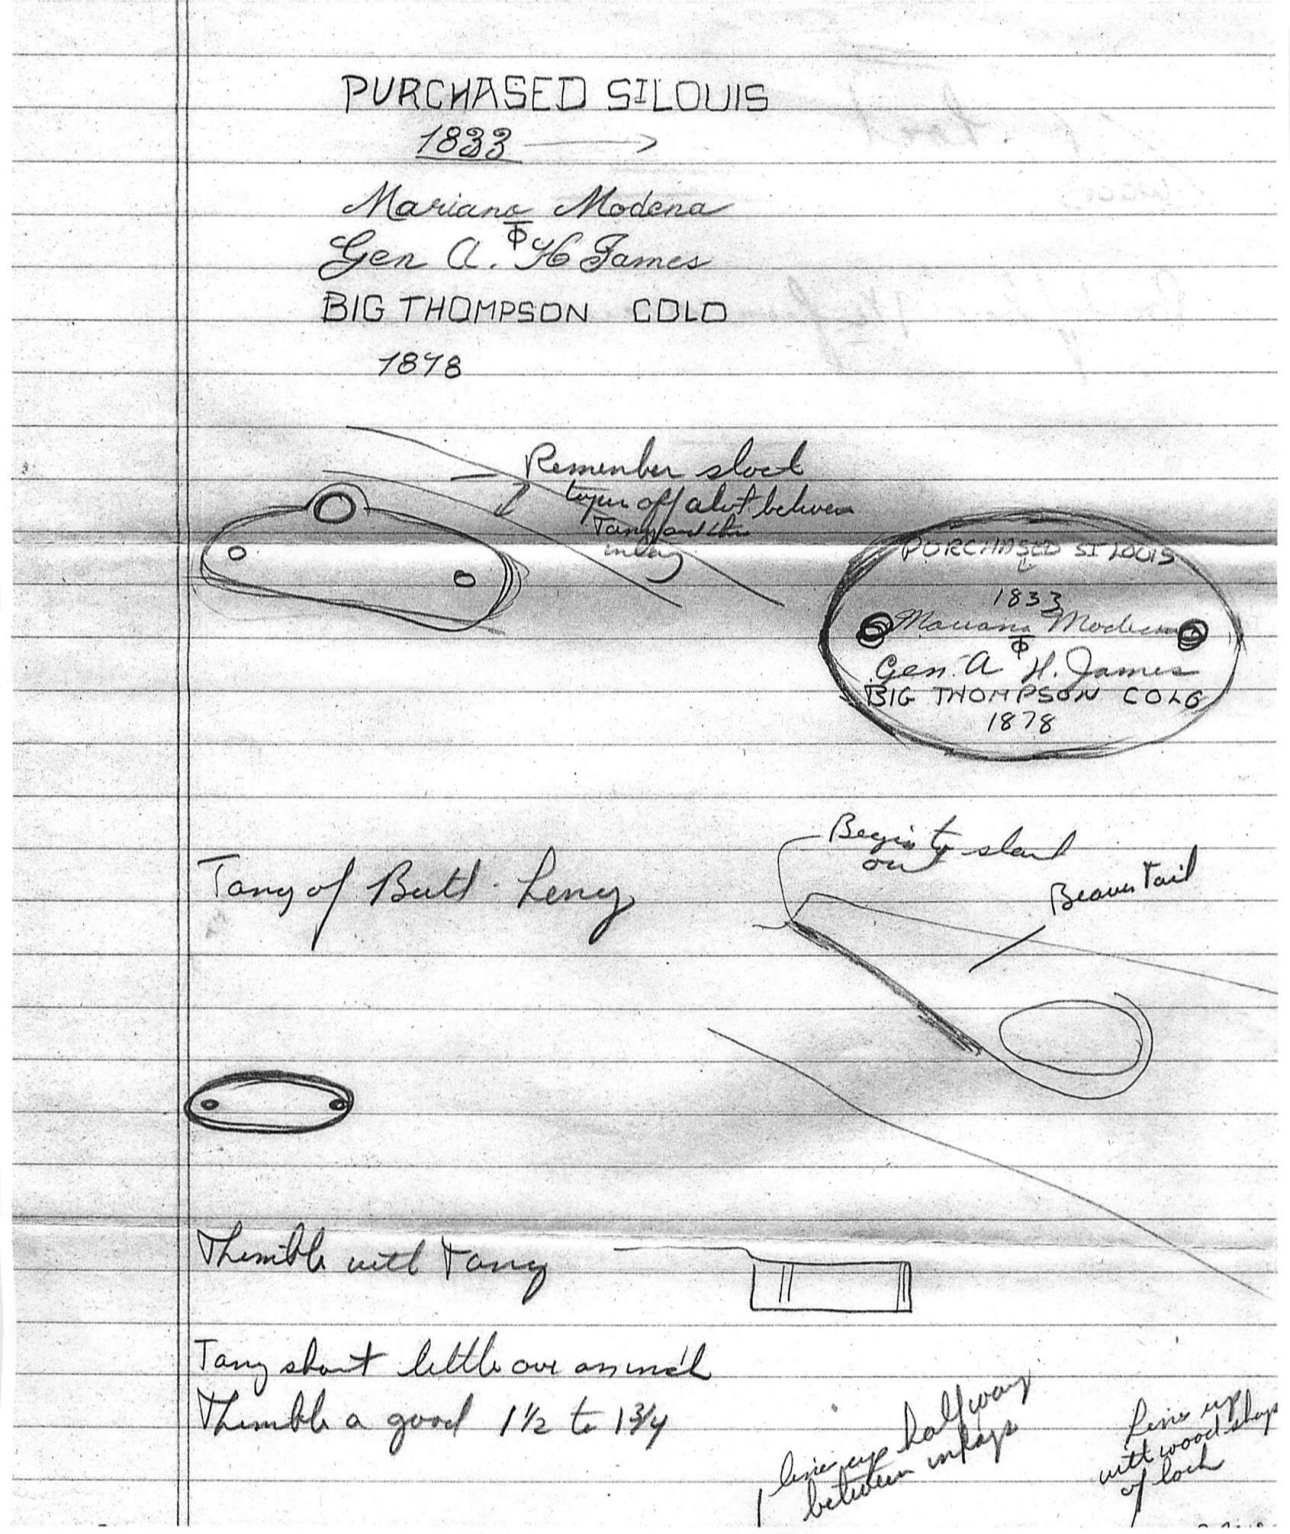 PURCHASED ST LOUIS
1833
Mariano Modena
TO
Gen A. H James
BIG THOMPSON COLO
1878
Remember stock
taper off alot between
Tang and the
inlay
PURCHASED ST LOUIS
1833
Mariano Modena
TO
Gen. A H. James
BIG THOMPSON COLO
1878
Begin to slant
out
Beaver Tail
Tang of Butt Long
Thimble with Tang
Tang short little over an inch
Thimble a good 1 1/2 to 1 3/4
line up halfway
between inlays
Line up
with wood shape
of lock